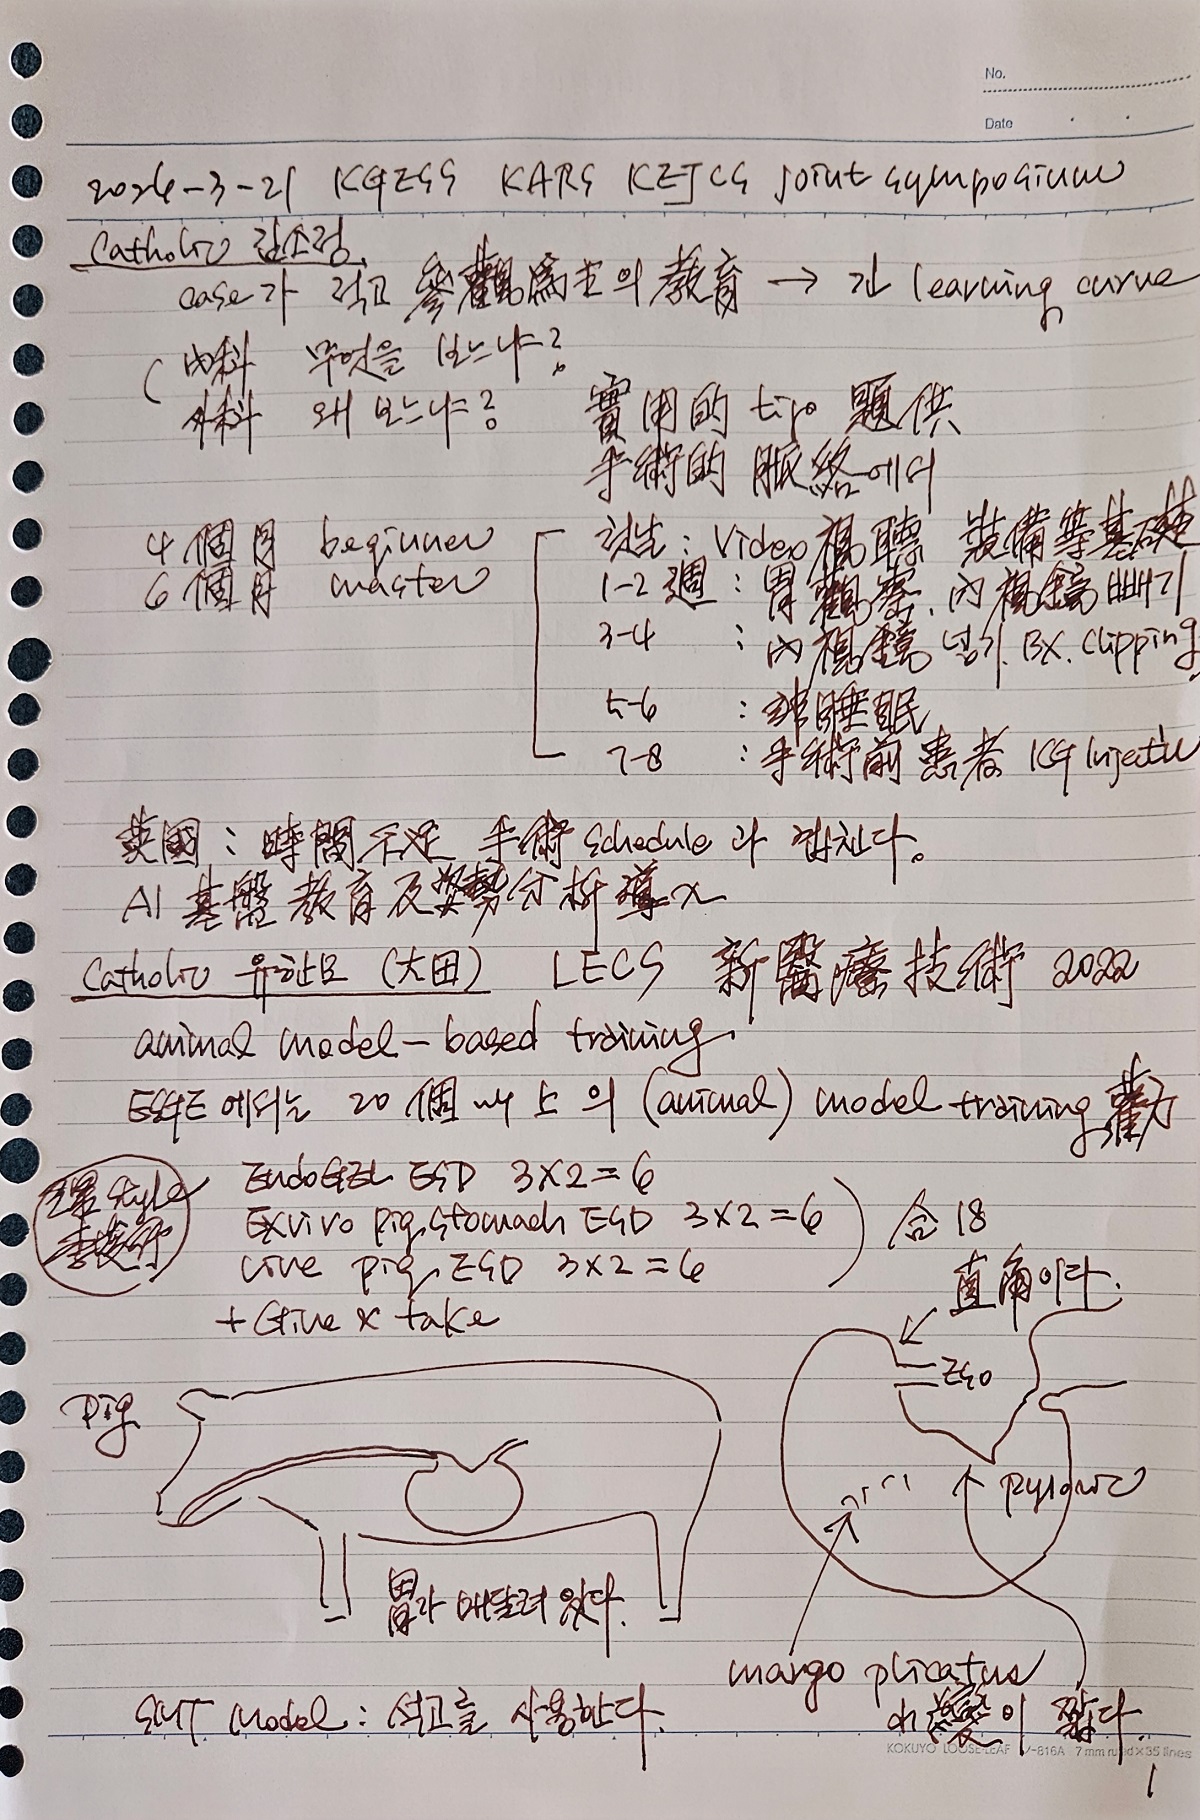 No.
Date
2026-3-21 KGESS KARS KEJCS joint symposium
Catholic 김소정
case가 적고 參觀爲主의 教育 → 긴 learning curve
內科 무엇을 보느냐?
外科 왜 보느냐?
實用的 tips 題供
手術的 脈絡에서
4個月 beginner
6個月 master
: Video 視聽 裝備等基礎
1-2週 : 胃觀察, 內視鏡 빼기
3-4 : 內視鏡 넣기. BX. Clipping
5-6 : 非睡眠
7-8 : 手術前患者 ICG Injection
英國 : 時間不足 手術schedule과 겹친다.
AI 基盤 教育及姿勢分析導入
Catholic (大田) LECS 新醫療技術 2022
animal model-based training
ESGE에서는 20個以上의 (animal) model training 勸
style
EndoGEL ESD 3×2=6
Exvivo pig stomach ESD 3×2=6
Live pig ESD 3×2=6
合 18
+ Give & take
直角이다.
EGJ
Pig
pyloric
胃가 매달려 있다.
margo plicatus
小彎이 짧다.
SMT model : 석고를 사용한다.
KOKUYO LOOSE-LEAF 816A 7 mm ruled×35 lines
1